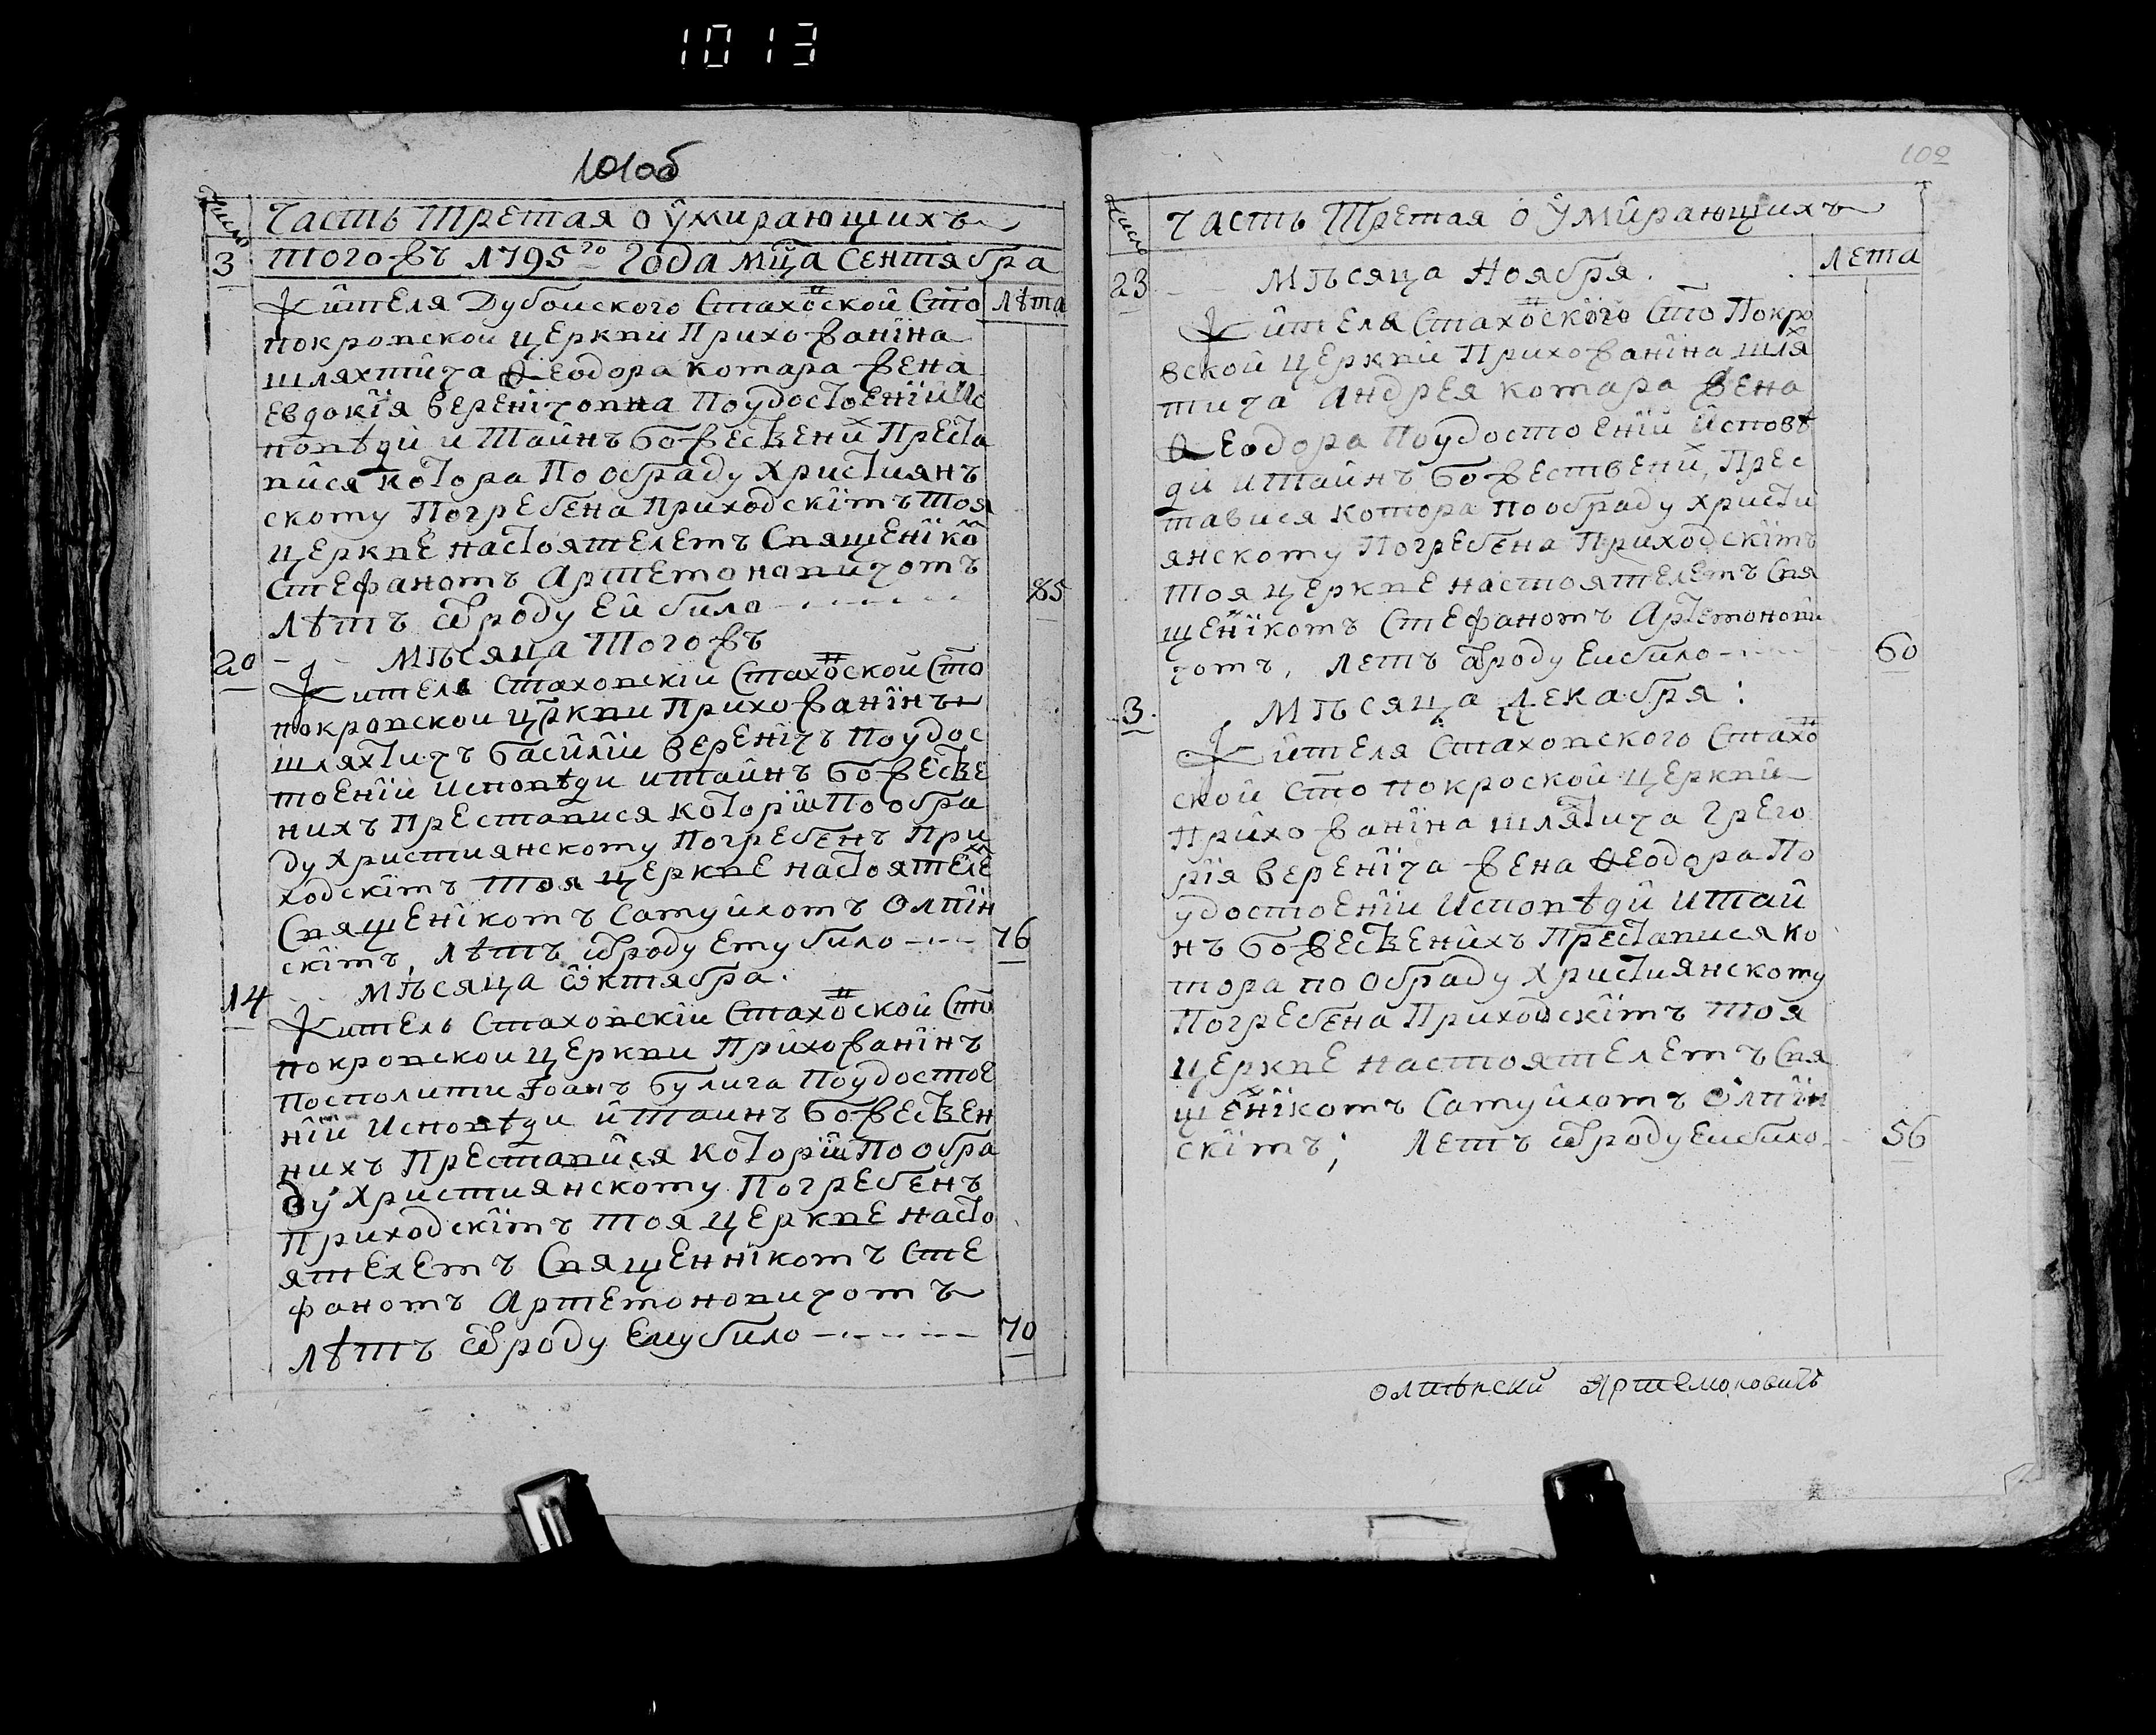 1013
101об
Число
Часть Третая о умирающихъ
3
тогожъ 1795го Года мца Сентября
Жителя Дубойского Стахӧской Сто
Лѣта
покровской церкви Прихожанина
шляхтича Ѳеодора Котара жена
Евдокїя Веренїчовна Поудостоенїи Ис
повѣди и Таинъ божествених Преста
вися котора По обряду Християнъ
скому Погребена Приходскїмъ Тоя
церкве настоятелемъ Священїко
Стефаномъ Артемоновичомъ
Лѣтъ ѿроду Ей било
85
20
Мѣсяца Тогожъ
Жителъ Стаховскїй Стахӧской Сто
покровской цркви Прихожанїнъ
шляхтичъ Василїй Веренїчъ Поудос
тоенїи Исповѣди и таинъ божестве
нихъ Преставися которїй По обря
ду Християнскому Погребенъ При
ходскїмъ Тоя церкве настоятеле
Священїкомъ Самуйломъ Олпїн
скїмъ, Лѣтъ ѿроду Ему било
76
14
Мѣсяца ѡктября.
Житель Стаховскїй Стахӧской Сто
покровской церкви Прихожанїнъ
Посполити Їоанъ Булига Поудостое
нїи Исповѣди и Таинъ божествен
нихъ Преставися которїй По обря
ду Християнскому Погребенъ
Приходскїмъ Тоя церкве насто
ятелемъ Священнїкомъ Сте
фаномъ Артемоновичомъ
Лѣтъ ѿроду Ему било
70
102
Число
Часть Третая о умирающихъ
23
Мѣсяца Ноября.
Лета
Жителя Стахӧского Сто Покро
вской церкви Прихожанїна шля
тича Андрея Котара жена
Ѳеодора Поудостоенїи Исповѣ
ди и таинъ божествених, Прес
тавися котора по обряду Христи
янскому Погребена Приходскїмъ
Тоя церкве настоятелемъ Свя
щенїкомъ Стефаномъ Артемонови
чомъ, Летъ ѿроду Ей било
60
3.
Мѣсяца Декабря:
Жителя Стаховского Стахӧ
ской Сто покроской церкви
Прихожанїна шляхтича Грего
рїя Веренїча жена Ѳеодора По
удостоенїи Исповѣди и таи
нъ божественихъ Преставися ко
тора по обряду Християнскому
Погребена Приходскїмъ Тоя
церкве настоятелемъ Свя
щенїкомъ Самуйломъ Олпїн
скїмъ; Летъ ѿроду Ей било
56
Олпѣнски Артемоновичъ